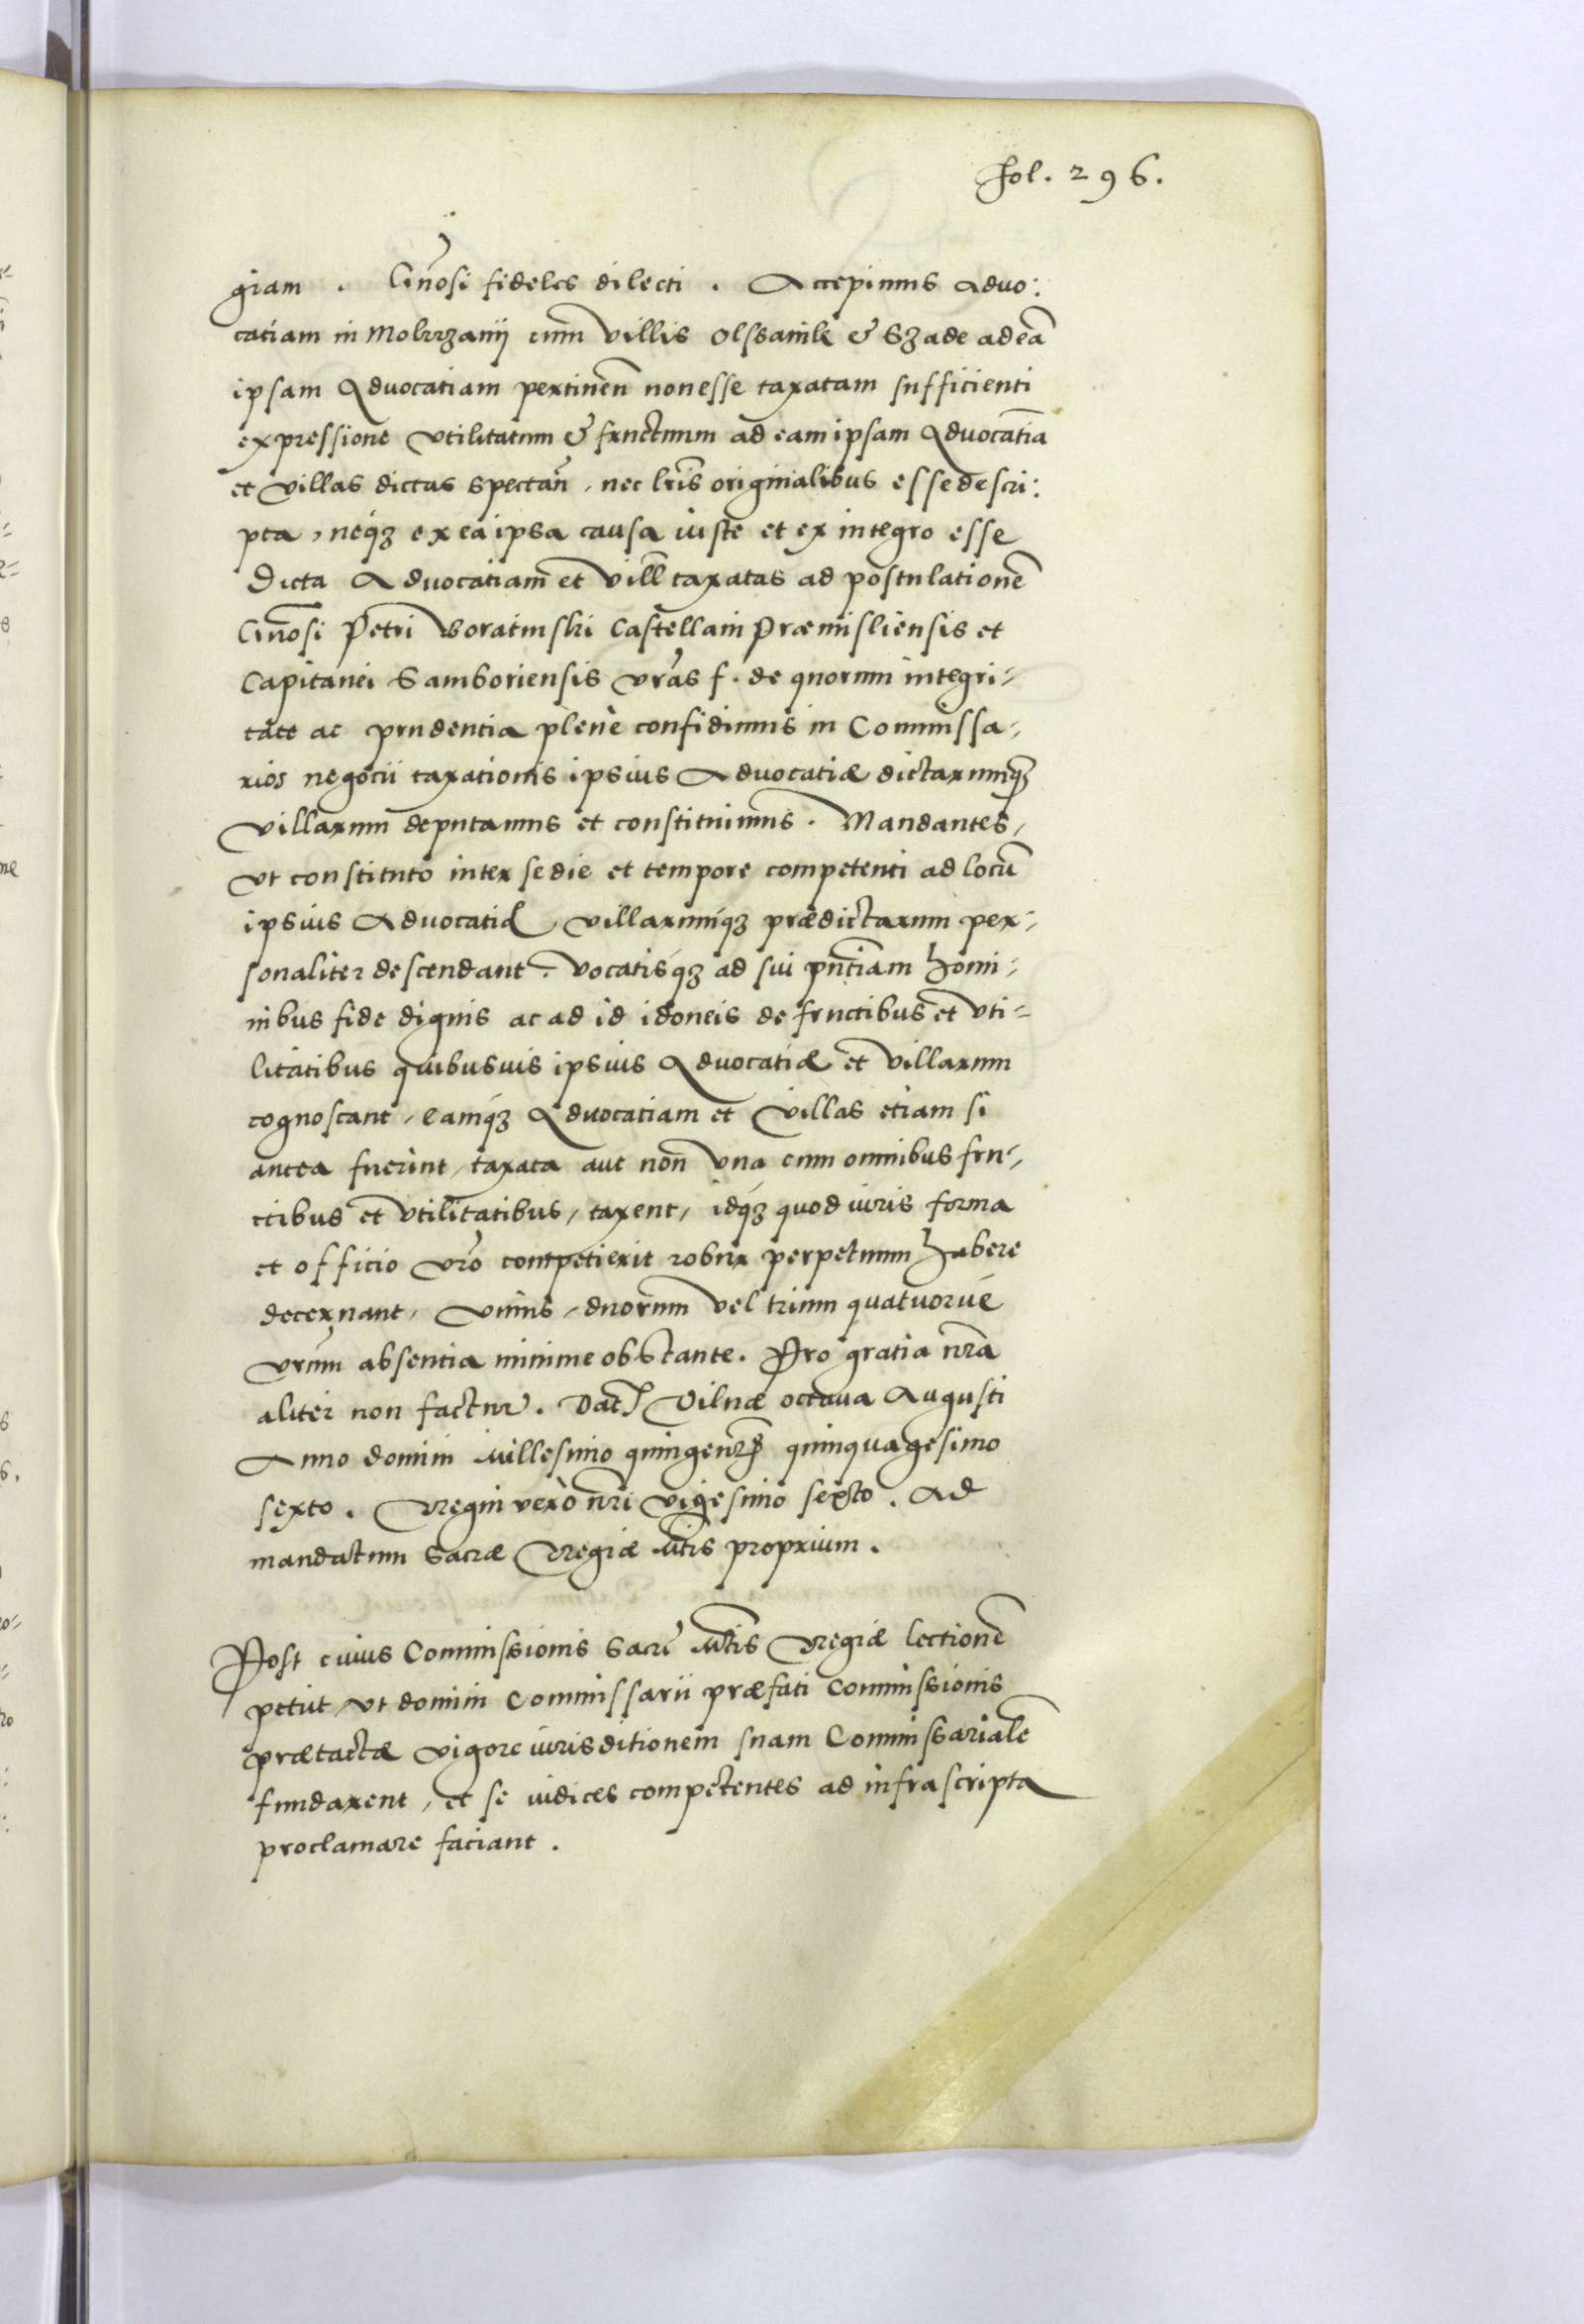 fol. 296.
giam. Gnosi fideles dilecti. Accepimus Aduo:
catiam in Mobrzanij cum villis Olssanik & Szade ad eā
ipsam Aduocatiam pertineñ non esse taxatam sufficienti
expressione vtilitatum & fructuum ad eam ipsam Aduocatiā
et villas dictas spectañ, nec lris originalibus esse descri:
pta, neq́ꝫ ex ea ipsa causa iuste et ex integro esse
Dicta Aduocatiam et vill taxatas ad postulationē
Gnosi Petri Boratinski Castellani Præmisliensis et
Capitanei Samboriensis vras f. de quorum integri-
tate ac prudentia plene confidimus in Commissa-
rios negocii taxationis ipsius Aduocatiæ dictarumqꝫ
villarum deputamus et constituimus. Mandantes,
vt constituto inter se die et tempore competenti ad locū
ipsius Aduocatiæ, villarumq́ꝫ prædictarum per-
sonaliter descendant. vocatisq́ꝫ ad sui pntiam homi-
nibus fide dignis ac ad id idoneis de fructibus et vti-
litatibus quibusuis ipsius Aduocatiæ et villarum
cognoscant, eamq́ꝫ Aduocatiam et villas etiam si
antea fuerint, taxata aut non vna cum omnibus fru-
ctibus et vtilitatibus, taxent, idq́ꝫ quod iuris forma
et officio vro competierit robur perpetuum habere
decernant, vnius, duorum vel trium quatuorúe
vrum absentia minime obstante. Pro gratia nra
aliter non factur. Dat Vilnæ octaua Augusti
Anno domini Millesimo quingento quinquagesimo
sexto. Regni verò nri vigesimo sexto. Ad
mandatum Sacræ Regiæ Mtis proprium.
Post cuius Commissionis Sacræ Mtis Regiæ lectionē
petiit vt domini Commissarii præfati Commissionis
prætactæ vigore iurisditionem suam Commissarialē
fundarent, et se iudices competentes ad infrascripta
proclamare faciant.